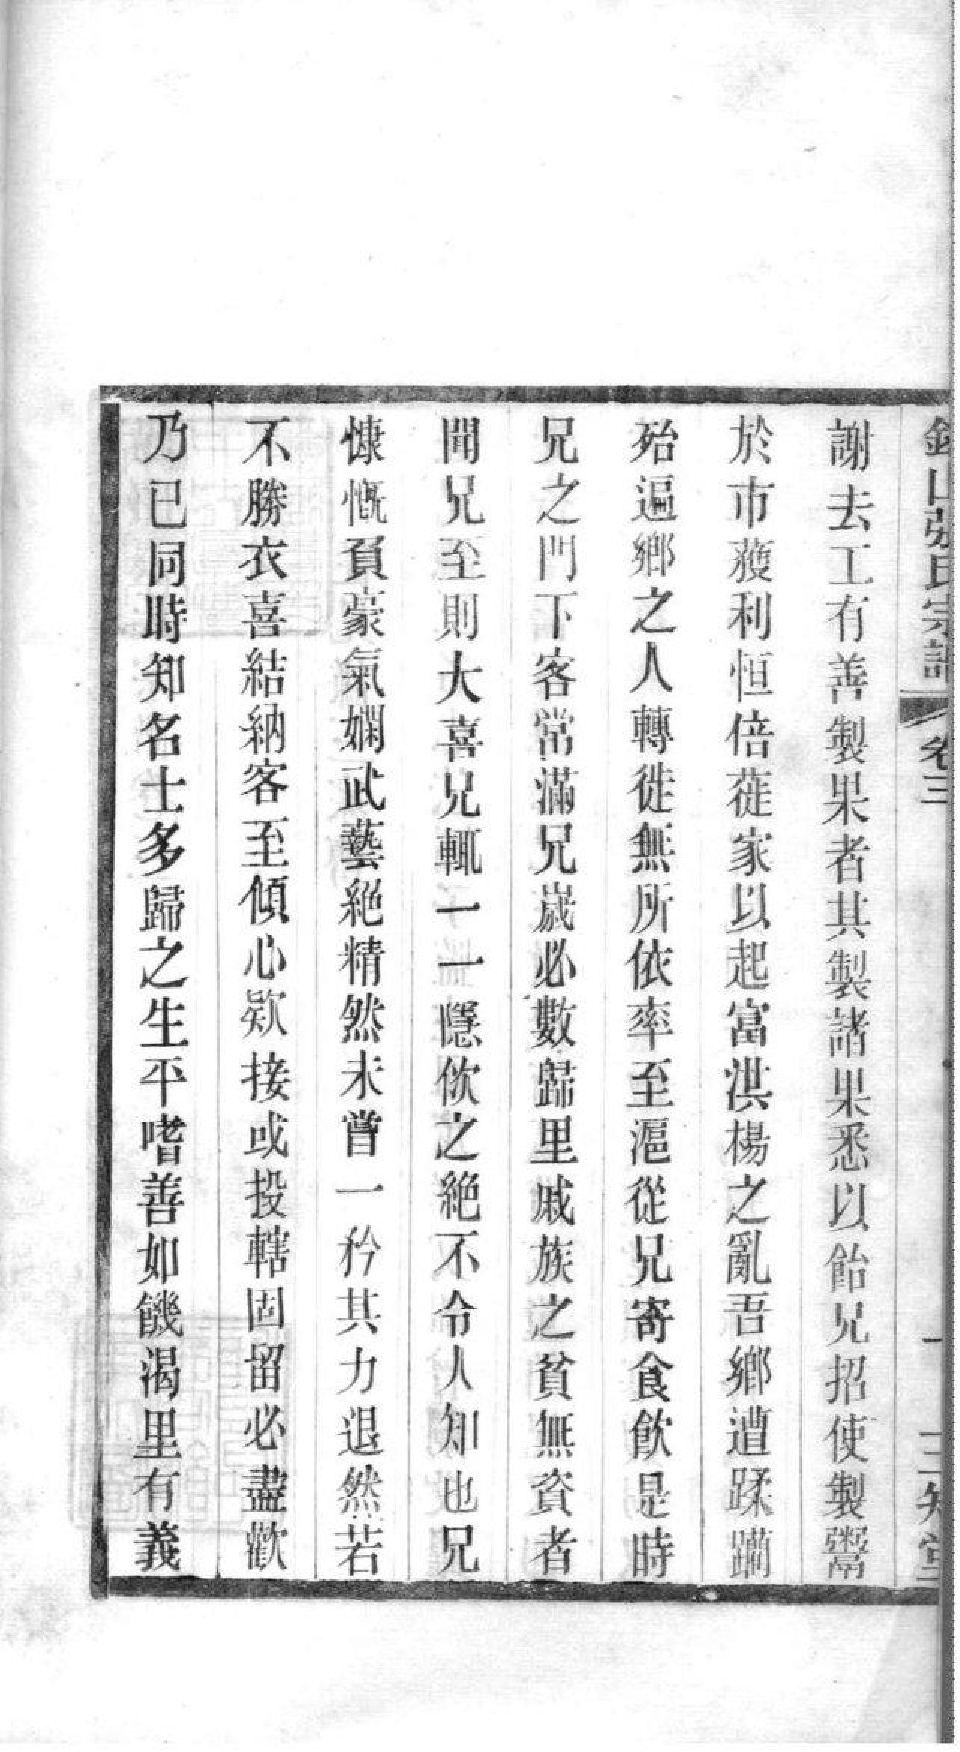 山張氏宗譜 卷三 一 三知堂
謝去工有善製果者其製諸果悉以飴兄招使製鬻
於市獲利恒倍蓰家以起富洪楊之亂吾鄉遭蹂躪
殆遍鄉之人轉徙無所依率至滬從兄寄食飲是時
兄之門下客當滿兄歲必數歸里戚族之貧無資者
聞兄至則大喜兄輒一一隱佽之絕不令人知也兄
慷慨負豪氣嫻武藝絕精然未嘗一矜其力退然若
不勝衣喜結納客至傾心欵接或投轄固留必盡歡
乃已同時知名士多歸之生平嗜善如饑渴里有義